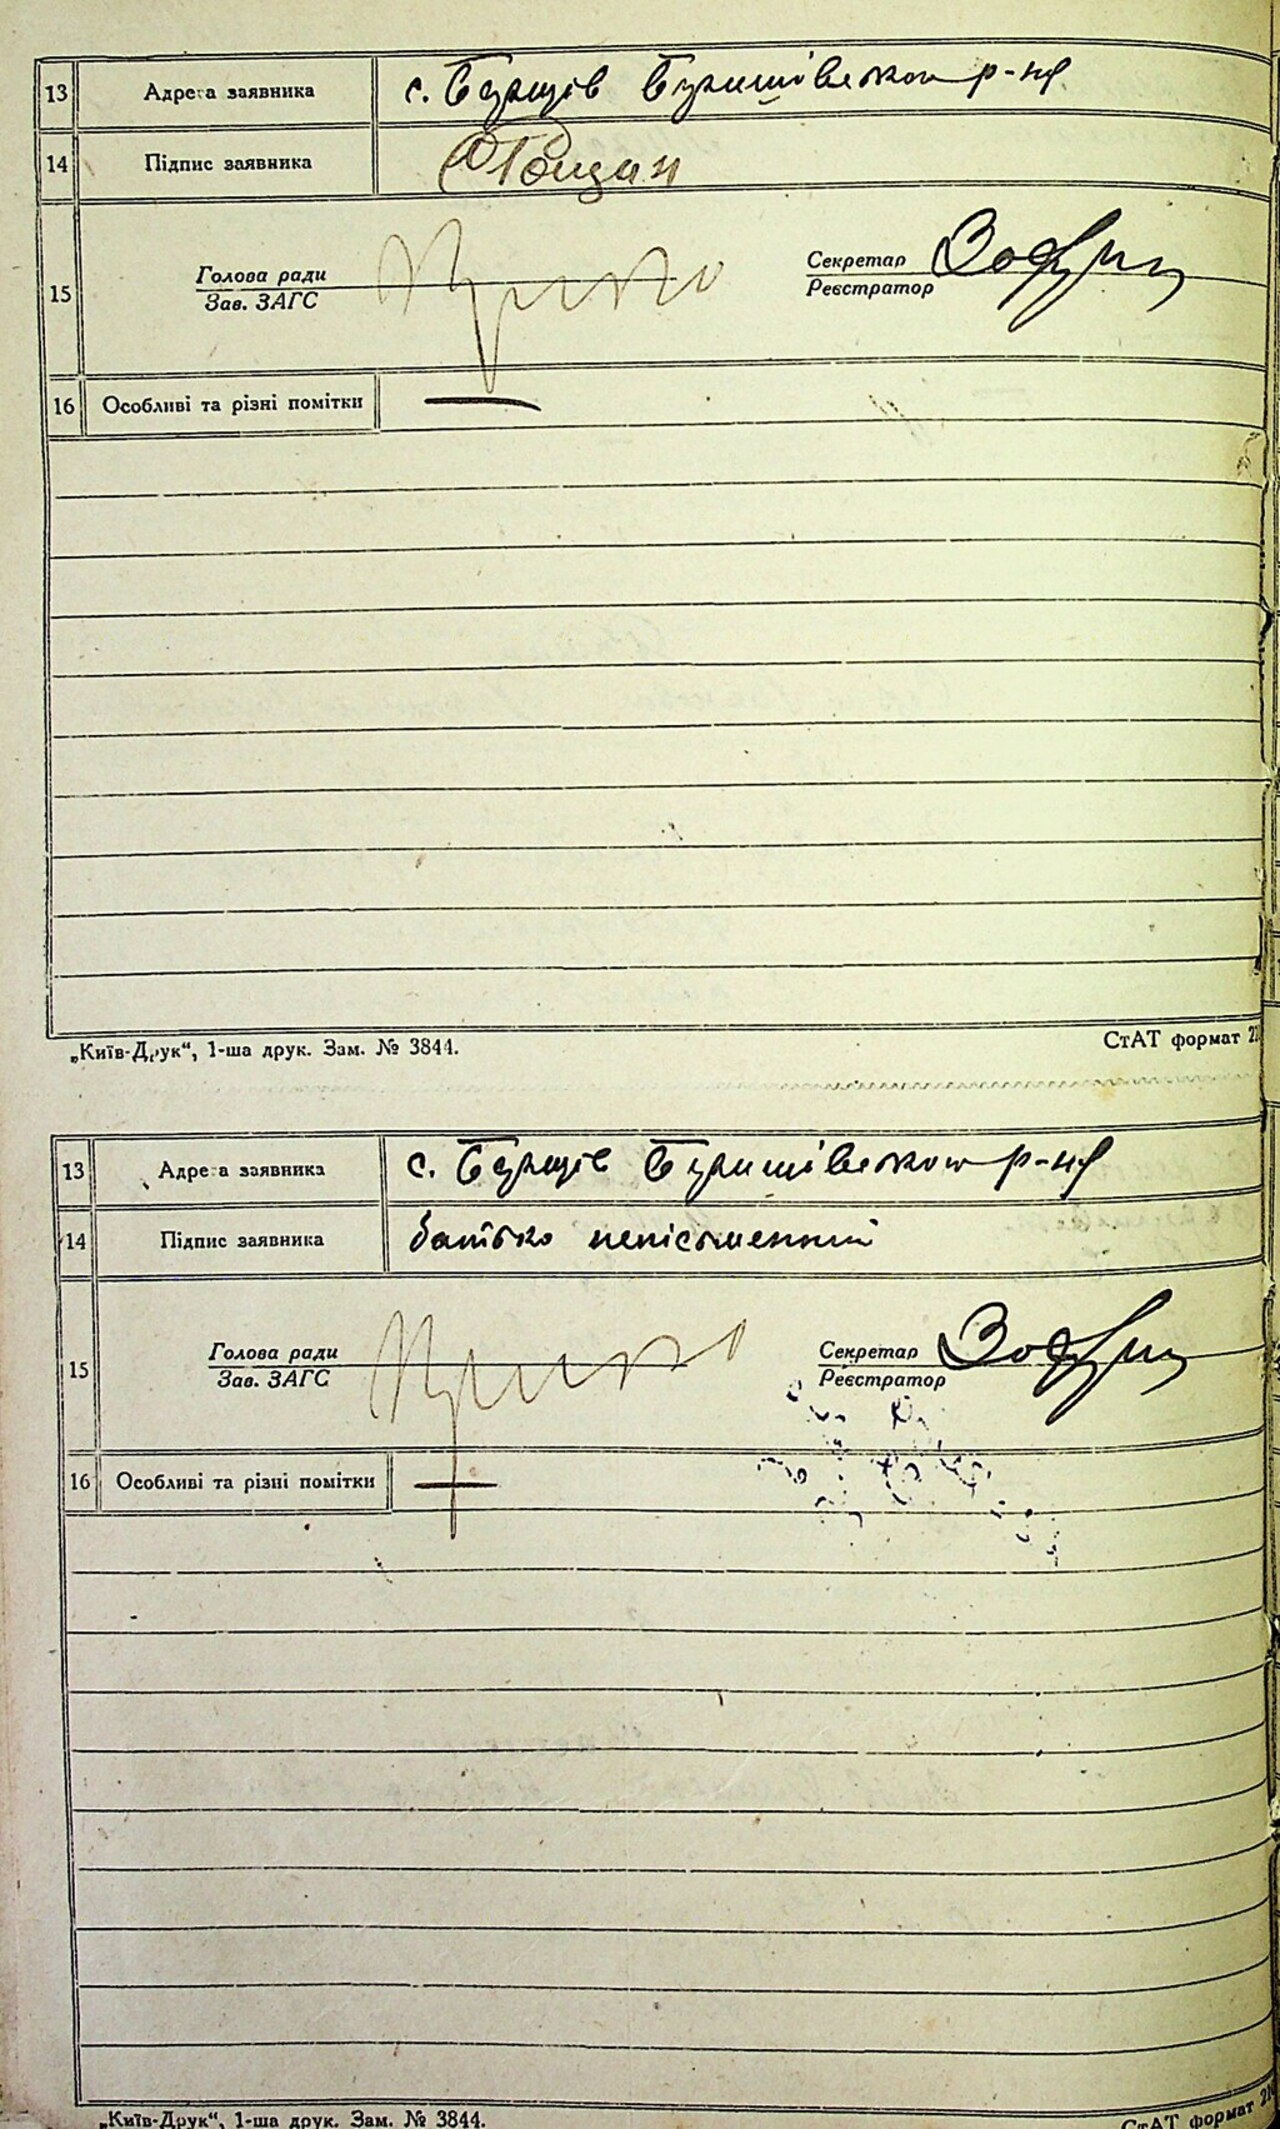 13 Адреса заявника с. Бурщів Буришівського р-ну
14 Підпис заявника
15 Голова ради Секретар
Зав. ЗАГС Реєстратор
16 Особливі та різні помітки —
„Київ-Друк“, 1-ша друк. Зам. № 3844. СтАТ формат
13 Адреса заявника с. Бурщів Буришівського р-ну
14 Підпис заявника батько неписьменний
15 Голова ради Секретар
Зав. ЗАГС Реєстратор
16 Особливі та різні помітки —
„Київ-Друк“, 1-ша друк. Зам. № 3844. СтАТ формат